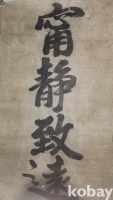 甯静致遠
kobay